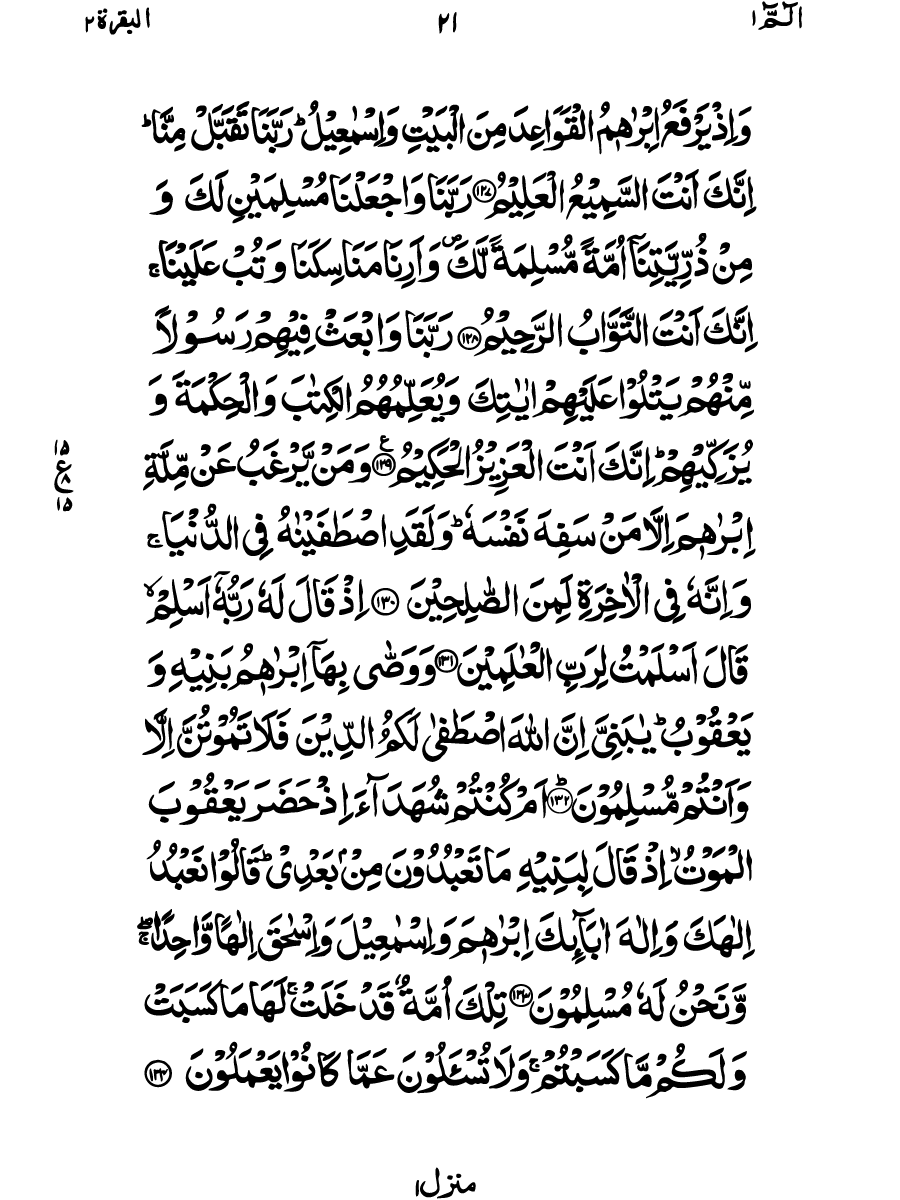 الٓمّٓ ١ ٢١ البقرة ٢
وَاِذْ يَرْفَعُ اِبْرٰهٖمُ الْقَوَاعِدَ مِنَ الْبَيْتِ وَاِسْمٰعِيْلُ ؕ رَبَّنَا تَقَبَّلْ مِنَّا ؕ
اِنَّكَ اَنْتَ السَّمِيْعُ الْعَلِيْمُ ۝١٢٧ رَبَّنَا وَاجْعَلْنَا مُسْلِمَيْنِ لَكَ وَ
مِنْ ذُرِّيَّتِنَاۤ اُمَّةً مُّسْلِمَةً لَّكَ ۪ وَاَرِنَا مَنَاسِكَنَا وَتُبْ عَلَيْنَا ۚ
اِنَّكَ اَنْتَ التَّوَّابُ الرَّحِيْمُ ۝١٢٨ رَبَّنَا وَابْعَثْ فِيْهِمْ رَسُوْلًا
مِّنْهُمْ يَتْلُوْا عَلَيْهِمْ اٰيٰتِكَ وَيُعَلِّمُهُمُ الْكِتٰبَ وَالْحِكْمَةَ وَ
يُزَكِّيْهِمْ ؕ اِنَّكَ اَنْتَ الْعَزِيْزُ الْحَكِيْمُ ۝١٢٩ ع وَمَنْ يَّرْغَبُ عَنْ مِّلَّةِ
١٥
ع
٨
١٥
اِبْرٰهٖمَ اِلَّا مَنْ سَفِهَ نَفْسَهٗ ؕ وَلَقَدِ اصْطَفَيْنٰهُ فِى الدُّنْيَا ۚ
وَاِنَّهٗ فِى الْاٰخِرَةِ لَمِنَ الصّٰلِحِيْنَ ۝١٣٠ اِذْ قَالَ لَهٗ رَبُّهٗۤ اَسْلِمْ ۙ
قَالَ اَسْلَمْتُ لِرَبِّ الْعٰلَمِيْنَ ۝١٣١ وَوَصّٰى بِهَاۤ اِبْرٰهٖمُ بَنِيْهِ وَ
يَعْقُوْبُ ؕ يٰبَنِىَّ اِنَّ اللّٰهَ اصْطَفٰى لَكُمُ الدِّيْنَ فَلَا تَمُوْتُنَّ اِلَّا
وَاَنْتُمْ مُّسْلِمُوْنَ ؕ۝١٣٢ اَمْ كُنْتُمْ شُهَدَآءَ اِذْ حَضَرَ يَعْقُوْبَ
الْمَوْتُ ۙ اِذْ قَالَ لِبَنِيْهِ مَا تَعْبُدُوْنَ مِنْۢ بَعْدِىْ ؕ قَالُوْا نَعْبُدُ
اِلٰهَكَ وَاِلٰهَ اٰبَآئِكَ اِبْرٰهٖمَ وَاِسْمٰعِيْلَ وَاِسْحٰقَ اِلٰهًا وَّاحِدًا ۖۚ
وَّنَحْنُ لَهٗ مُسْلِمُوْنَ ۝١٣٣ تِلْكَ اُمَّةٌ قَدْ خَلَتْ ۚ لَهَا مَا كَسَبَتْ
وَلَكُمْ مَّا كَسَبْتُمْ ۚ وَلَا تُسْـَٔلُوْنَ عَمَّا كَانُوْا يَعْمَلُوْنَ ۝١٣٤
منزل ١